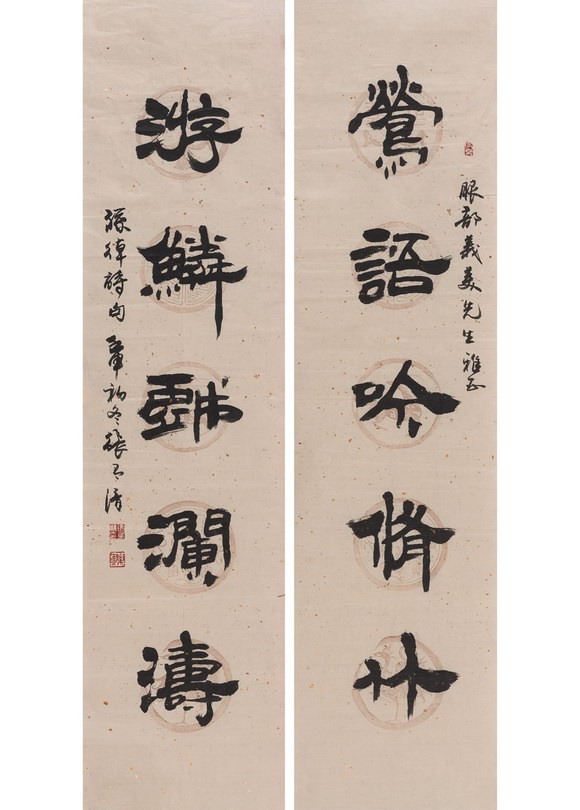 服部義美先生雅正
鶯語吟脩竹
游鱗戲瀾濤
孫綽詩句 初冬張 清